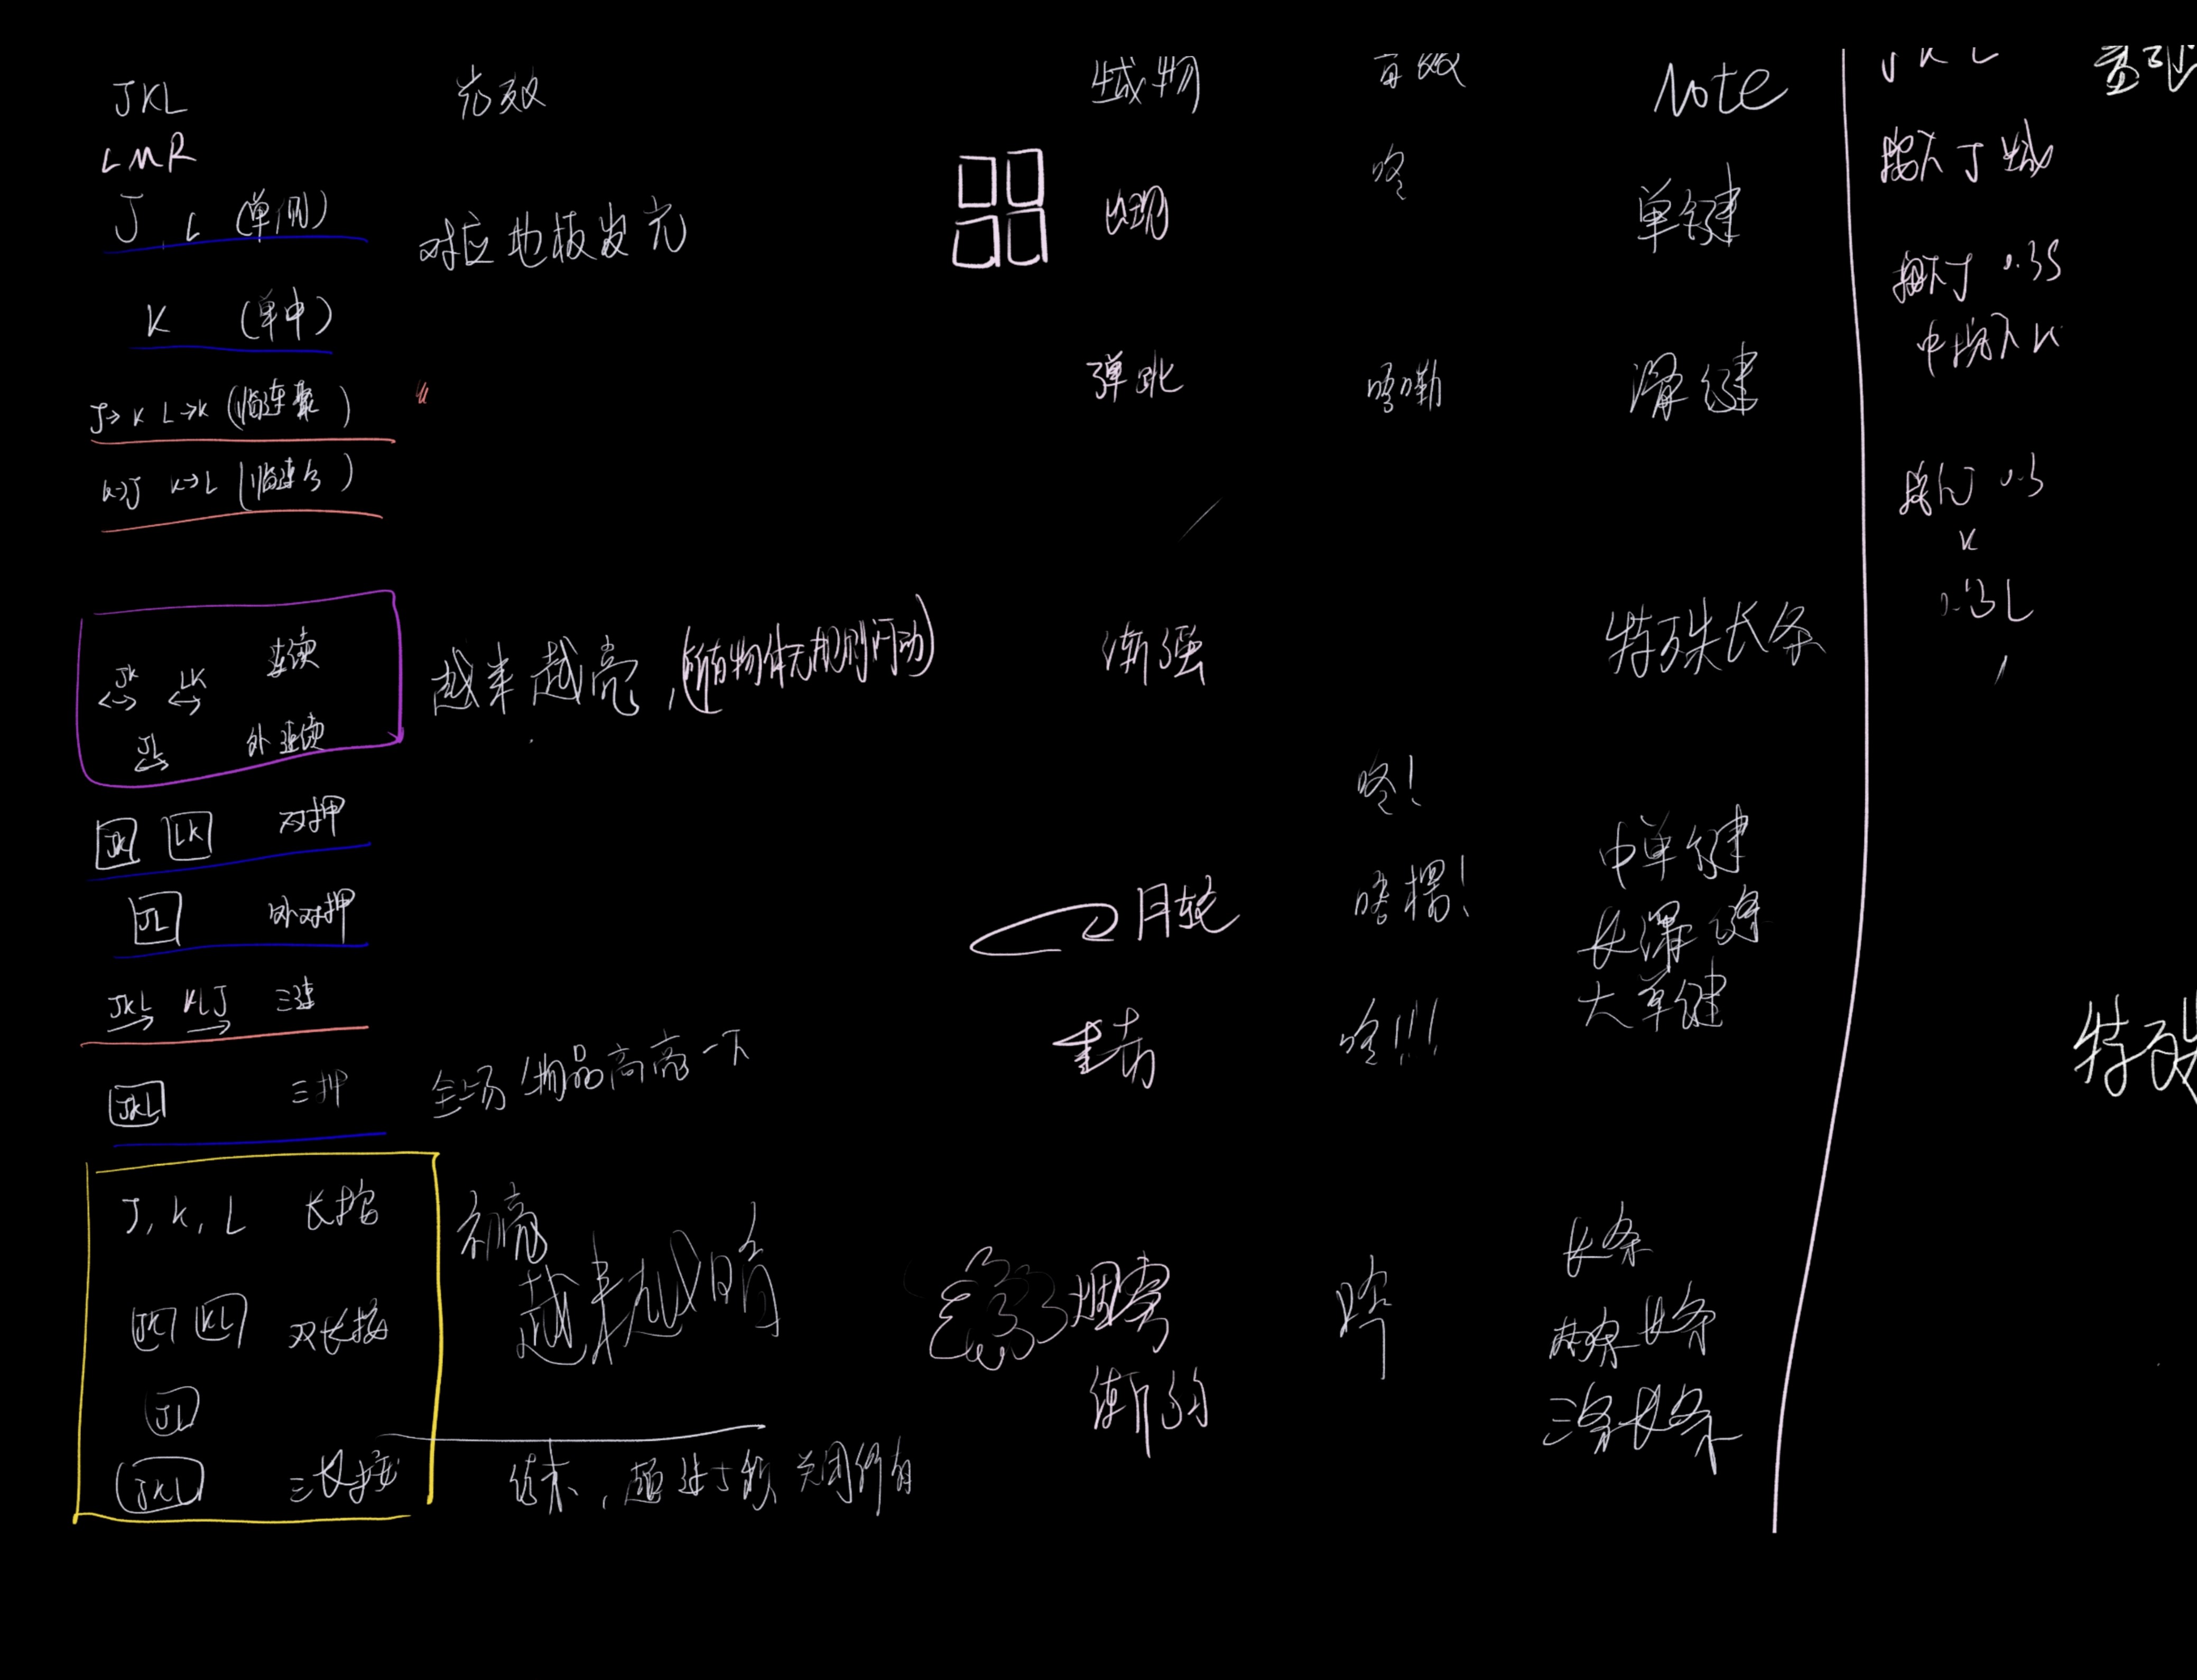 JKL 光效 生成物 音效 Note
LMR
J, L (单侧) 对应地板发光 出现 咚 单键
K (单中)
J→K L→K (临连聚) 弹跳 滑键
K→J K→L (临连分)
JK LK 连续 越来越亮, (所有物体无规则闪动) 渐强 特殊长条
JL 外连续
JK LK 对押 咚! 中单键
JL 外对押 月轮 长滑键
JKL KLJ 三连 大单键
JKL 三押 全场物品高亮一下 重击 咚!!!
J, K, L 长按 初亮 长条
JK KL 双长按 越来越暗 烟雾 两条长条
JL 渐弱 三条长条
JKL 三长按 结束, 超过5秒 关闭所有
JKL
按下J 生成
按下J 0.3S
中按入K
按下J 0.3
K
0.3L
特殊